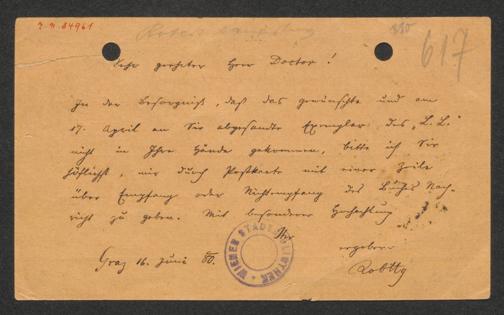 J.N. 84961
380
617
Sehr geehrter Herr Doctor!
In der Besorgniß, daß das gewünschte und am
17. April an Sie abgesandte Exemplar des „L. L."
nicht in Ihre Hände gekommen, bitte ich Sie
höflichst, mir durch Postkarte mit einer Zeile
über Empfang oder Nichtempfang des Buches Nach-
richt zu geben. Mit besonderer Hochachtung
Ihr
ergebener
Graz 16. Juni 80.
WIENER STADTBIBLIOTHEK